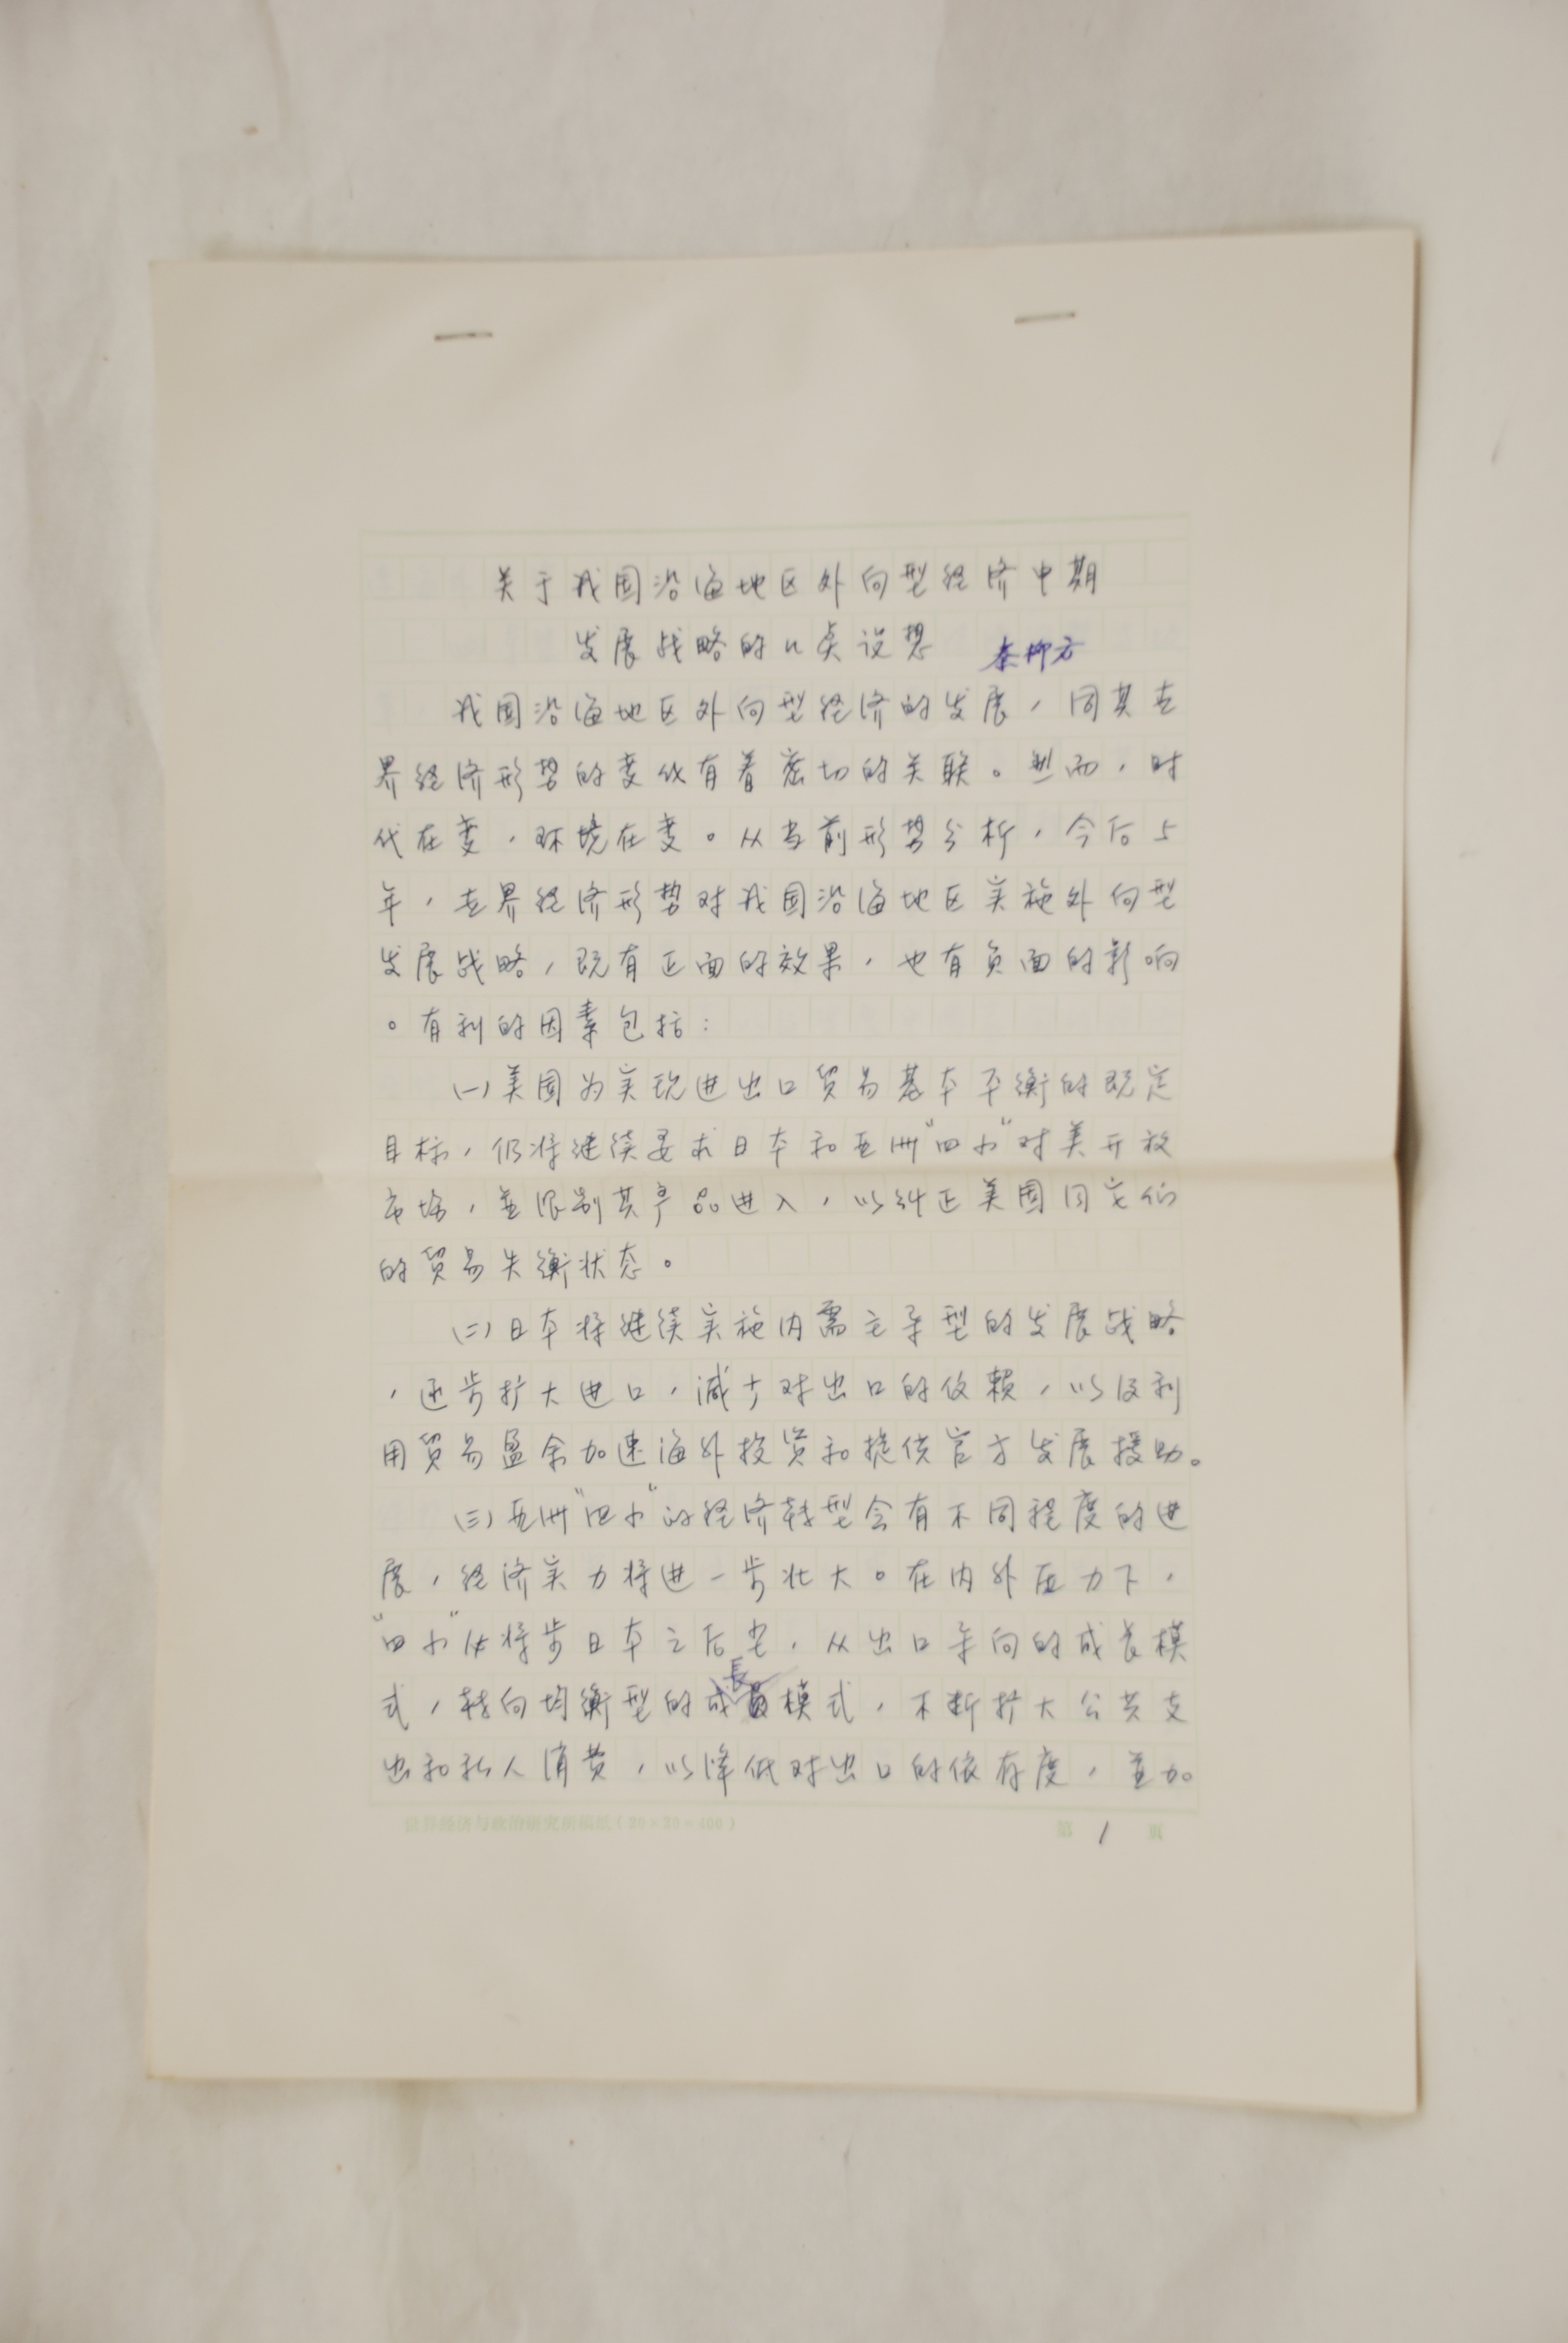 关于我国沿海地区外向型经济中期
发展战略的几点设想 秦柳方
我国沿海地区外向型经济的发展，同其世
界经济形势的变化有着密切的关联。然而，时
代在变，环境在变。从当前形势分析，今后5
年，世界经济形势对我国沿海地区实施外向型
发展战略，既有正面的效果，也有负面的影响
。有利的因素包括：
(一)美国为实现进出口贸易基本平衡的既定
目标，仍将继续要求日本和亚洲“四小”对美开放
市场，并限制其产品进入，以纠正美国同它们
的贸易失衡状态。
(二)日本将继续实施内需主导型的发展战略
，逐步扩大进口，减少对出口的依赖，以及利
用贸易盈余加速海外投资和提供官方发展援助。
(三)亚洲“四小”的经济转型会有不同程度的进
展，经济实力将进一步壮大。在内外压力下，
“四小”将步日本之后尘，从出口导向的成长模
式，转向均衡型的成長模式，不断扩大公共支
出和私人消费，以降低对出口的依存度，並加
世界经济与政治研究所稿纸(20×20=400) 第1页